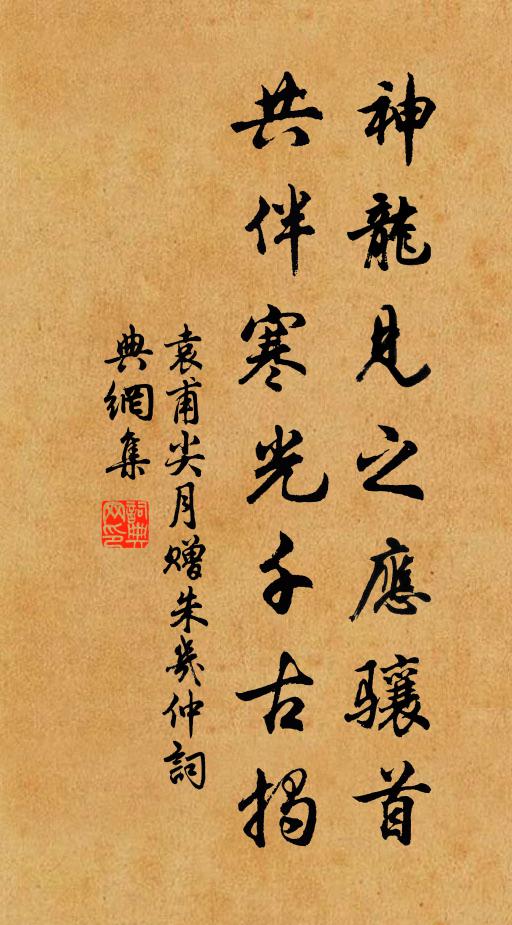 神龍見之應驤首
共伴寒光千古揭
袁甫尖月贈朱幾仲詞
典網集
詞典
网印